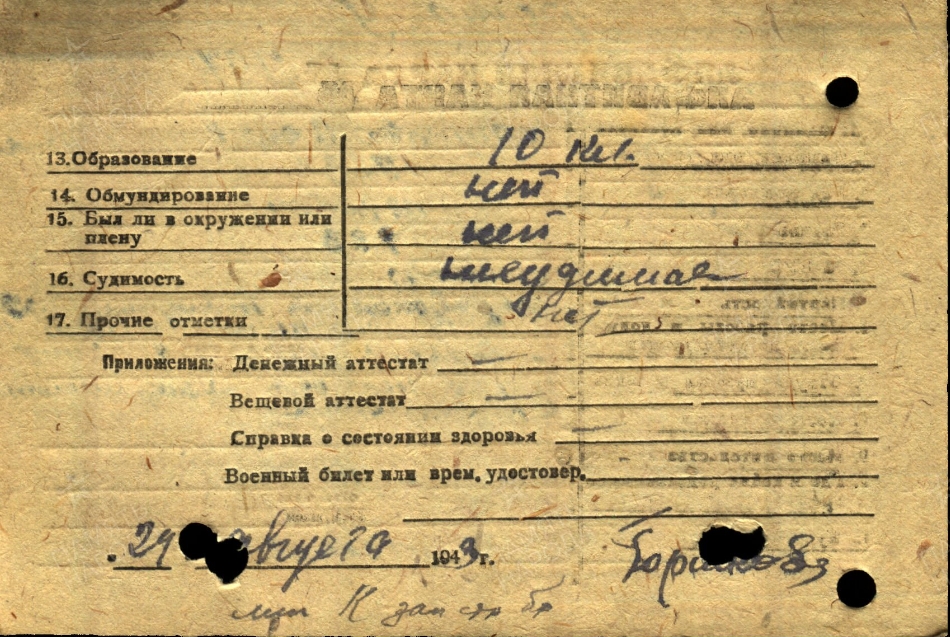 13.Образование 10 кл.
14. Обмундирование нет
15. Был ли в окружении или
плену нет
16. Судимость несудимая
17. Прочие отметки нет
Приложения: Денежный аттестат —
Вещевой аттестат —
Справка о состоянии здоровья —
Военный билет или врем. удостовер.
августа 1943 г.
К зап стр бр